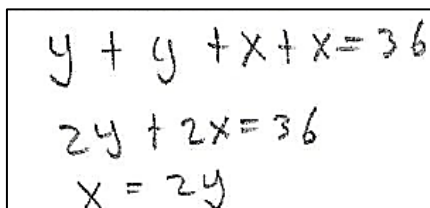 y + y + x + x = 36
2y + 2x = 36
x = 2y